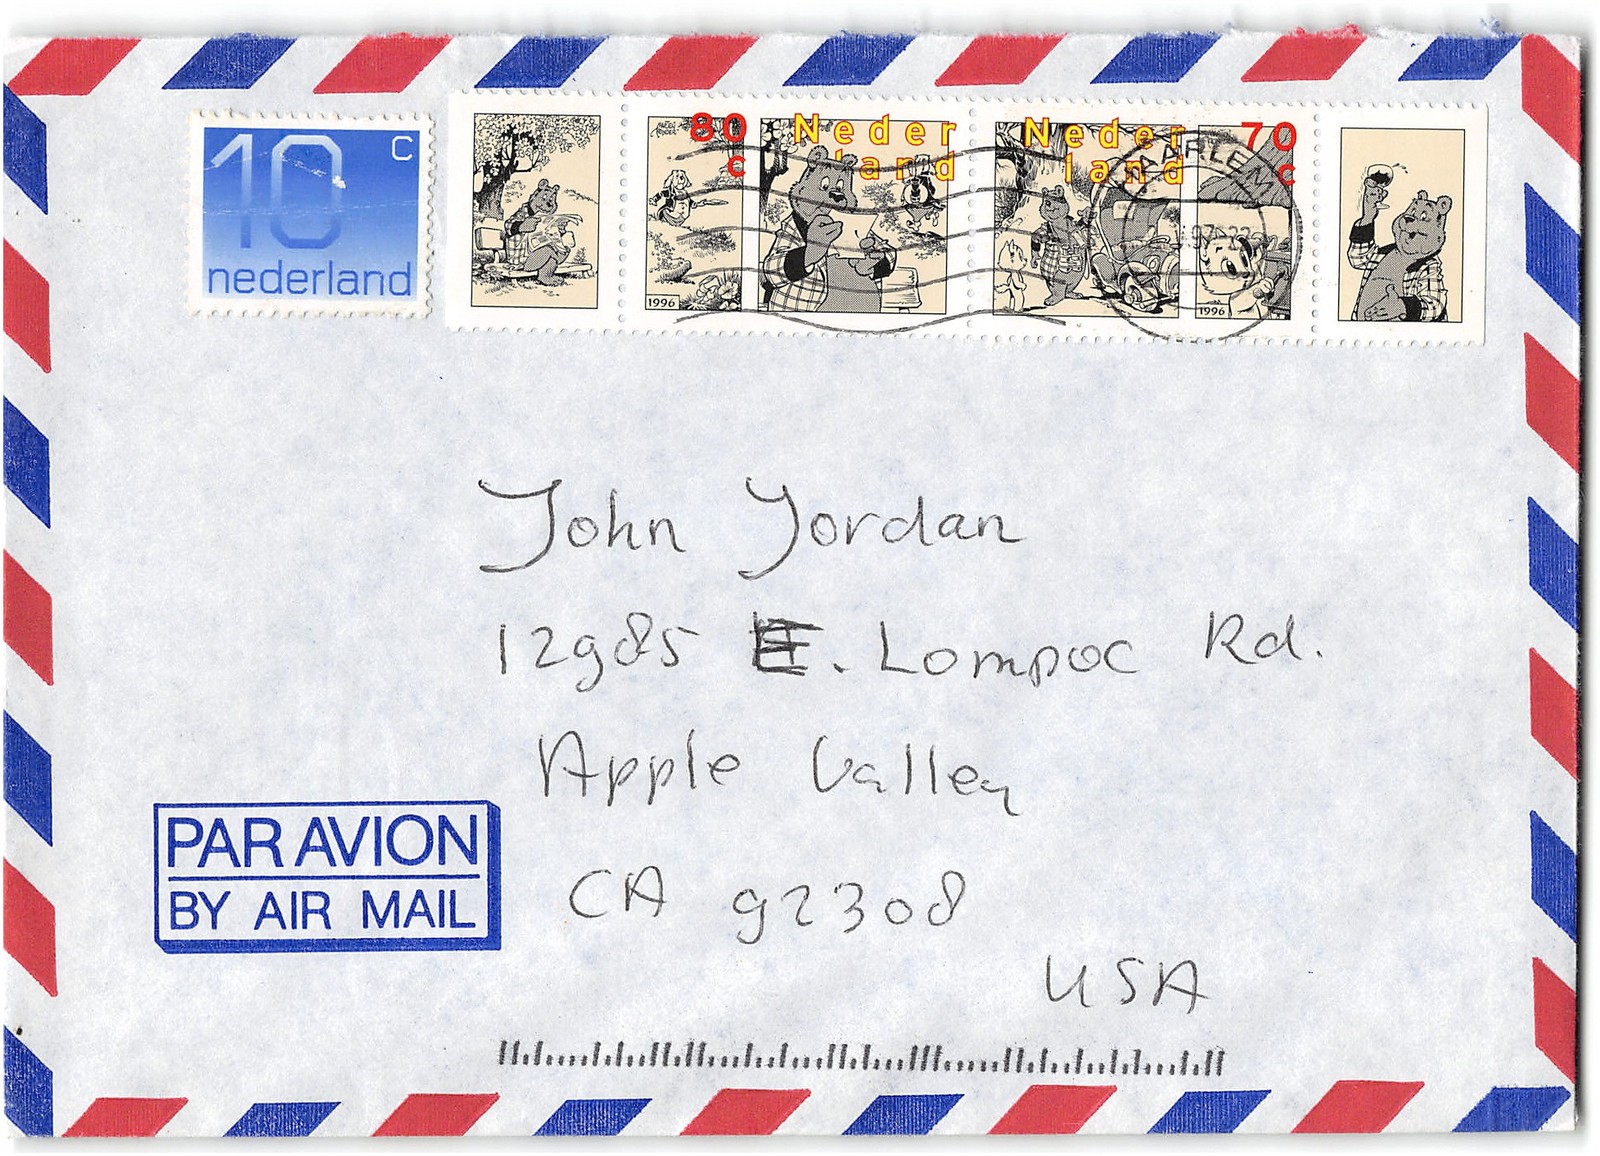 10 c
nederland
80 c
Neder
land
1996
Neder
land
70 c
1996
HAARLEM
John Jordan
12985 E. Lompoc Rd.
Apple Valley
CA 92308
USA
PAR AVION
BY AIR MAIL